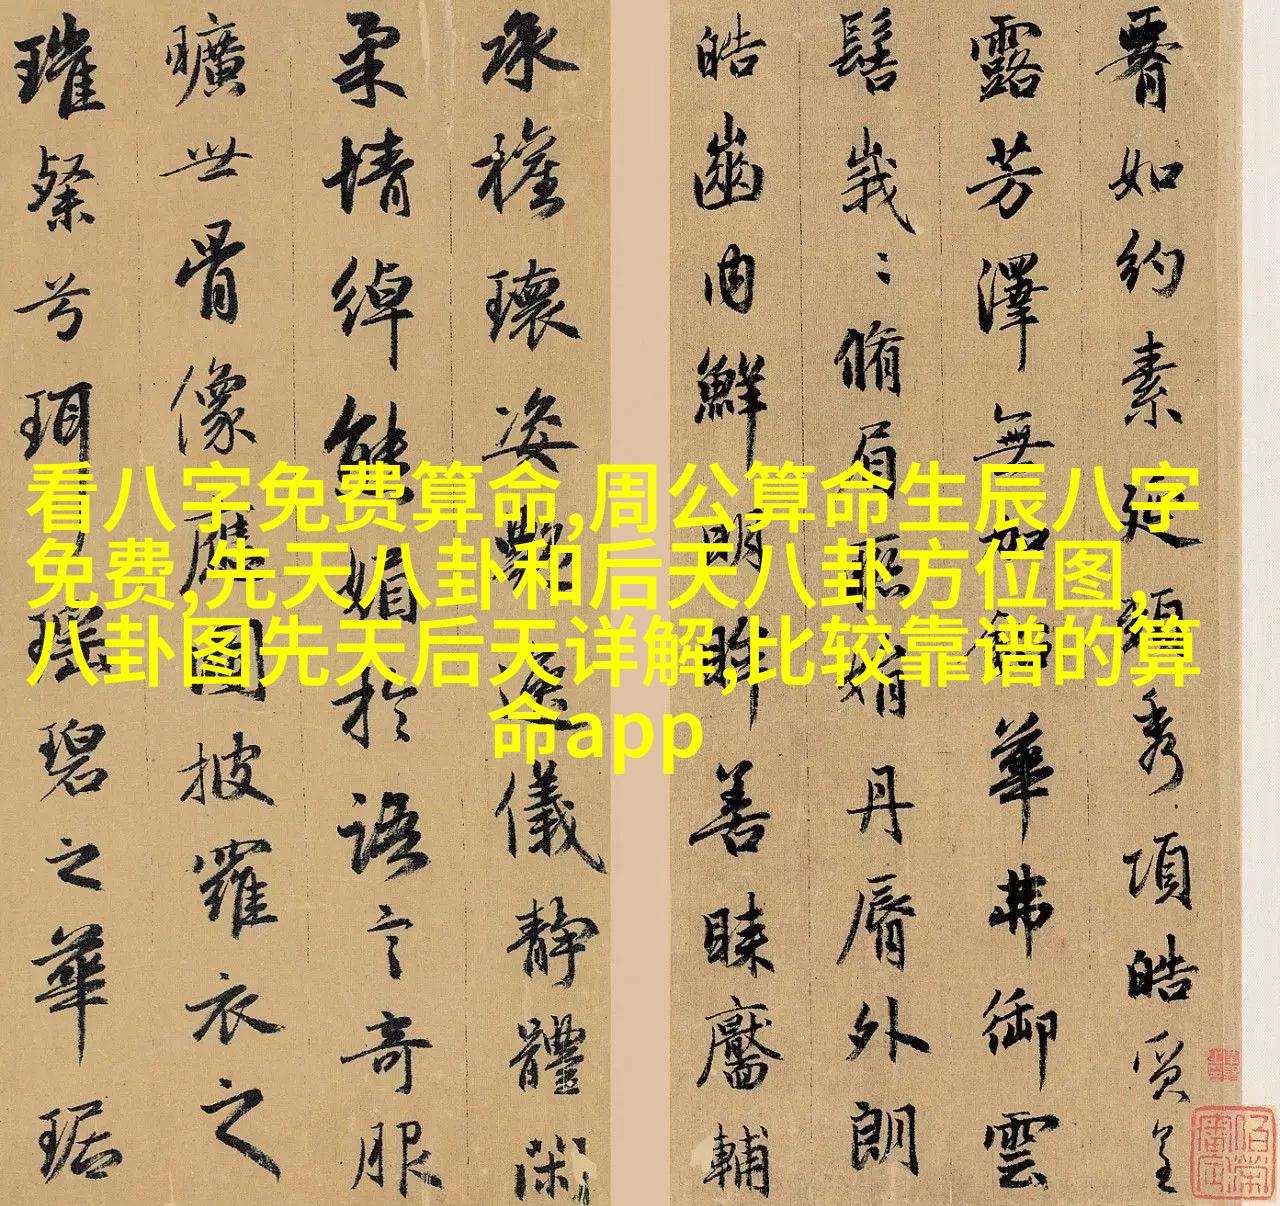 看八字免费算命,周公算命生辰八字
免费,先天八卦和后天八卦方位图,
八卦图先天后天详解,比较靠谱的算
命app
如約素延頸秀項皓質呈
露芳澤無加鉛華弗御雲
髻峩〻脩眉聯娟丹脣外朗
皓齒内鮮明眸善睞靨輔
承權瓌姿艷逸儀靜體閑
柔情綽態媚於語言奇服
曠世骨像應圖披羅衣之
璀粲兮珥瑤碧之華琚